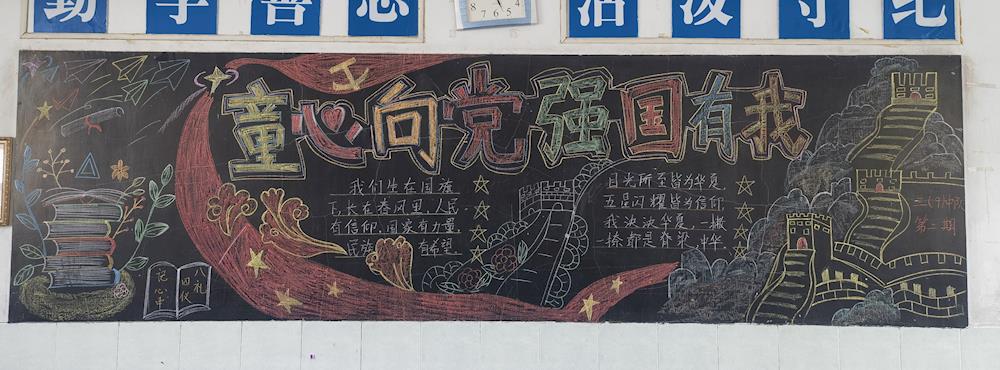 勤学善思
活泼守纪
8 7 6 5 4
童心向党 强国有我
我们生在国旗
下,长在春风里,人民
有信仰,国家有力量,
民族 有希望
目光所至皆为华夏,
五星闪耀皆为信仰
我泱泱华夏,一撇
一捺都是脊梁,中华
八礼
四仪
记心中
第二期